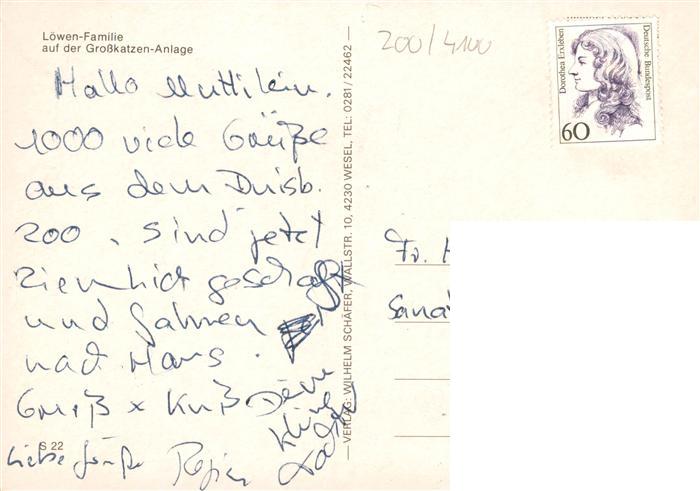 Löwen-Familie
auf der Großkatzen-Anlage
200/4100
Hallo Muttilein.
1000 viele Grüße
aus dem Duisb.
200. Sind jetzt
ziemlich geschafft
und fahren
nach Haus.
Gruß x Kuß Deine
kleine
Liebe Grüße
S 22
VERLAG: WILHELM SCHÄFER, WALLSTR. 10, 4230 WESEL, TEL: 0281 / 22462
Dorothea Erxleben
Deutsche Bundespost
60
Fr. H
Sana